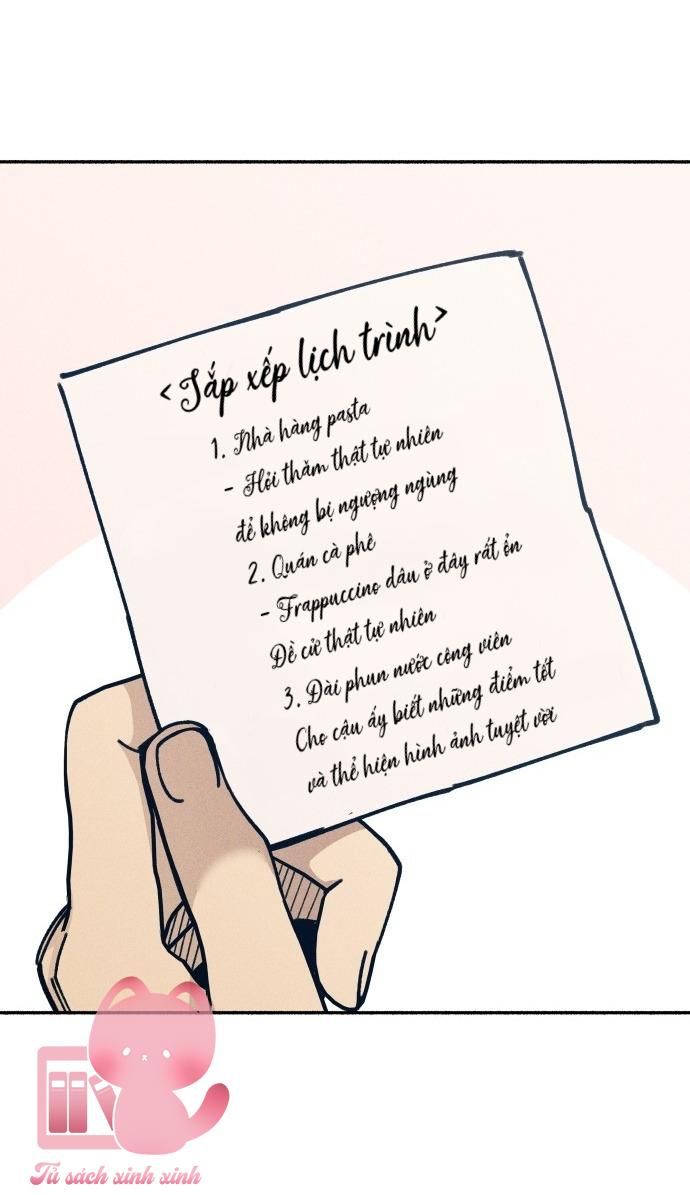 <Sắp xếp lịch trình>
1. Nhà hàng pasta
- Hỏi thăm thật tự nhiên
để không bị ngượng ngùng
2. Quán cà phê
- Frappuccino dâu ở đây rất ổn
Đề cử thật tự nhiên
3. Đài phun nước công viên
Cho cậu ấy biết những điểm tốt
và thể hiện hình ảnh tuyệt vời
Tủ sách xinh xinh